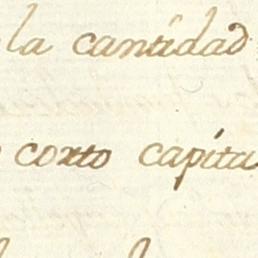 la cantidad
corto capita